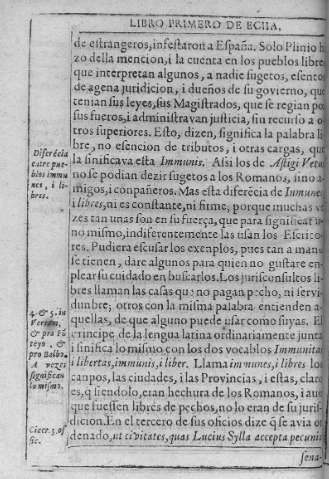 LIBRO PRIMERO DE ECIIA,
de estrangeros, infestaron a España. Solo Plinio hi
zo della mencion, i la cuenta en los pueblos libres
que interpretan algunos, a nadie sugetos, esentos
de agena juridicion, i dueños de su govierno, que
tenian sus leyes, sus Magistrados, que se regian por
sus fueros, i administravan justicia, sin recurso a o
tros superiores. Esto, dizen, significa la palabra li
bre, no esencion de tributos, i otras cargas, que
la sinificava esta Immunis. Assi los de Astigi Vetus
no se podian dezir sugetos a los Romanos, sino a-
migos, i conpañeros. Mas esta diferẽcia de Inmunes
i libres, ni es constante, ni firme, porque muchas ve
zes tan unas son en su fuerça, que para significar u-
no mismo, indiferentemente las usan los Escrito-
res. Pudiera escusar los exenplos, pues tan a mano
se tienen, dare algunos para quien no gustare en-
plear su cuidado en buscarlos. Los jurisconsultos li-
bres llaman las casas que no pagan pecho, ni servi-
dunbre; otros con la misma palabra entienden a-
quellas, de que alguno puede usar como suyas. El
principe de la lengua latina ordinariamente junta
i sinifica lo mismo con los dos vocablos Immunitas
i libertas, immunis, i liber. Llama immunes, i libres los
canpos, las ciudades, i las Provincias, i estas, claro
es, q̃ siendolo, eran hechura de los Romanos, i aun
que fuessen libres de pechos, no lo eran de su juris-
dicion. En el tercero de sus oficios dize q̃ se avia or
denado, ut civitates, quas Lucius Sylla accepta pecunia
sena-
Diferẽcia
entre pue-
blos immu
nes, i li-
bres.
4. & 5. in
Verrem,
& pro Fõ
teyo, &
pro Balbo.
A vezes
significan
lo mismo.
Cicer. 3. of
fic.